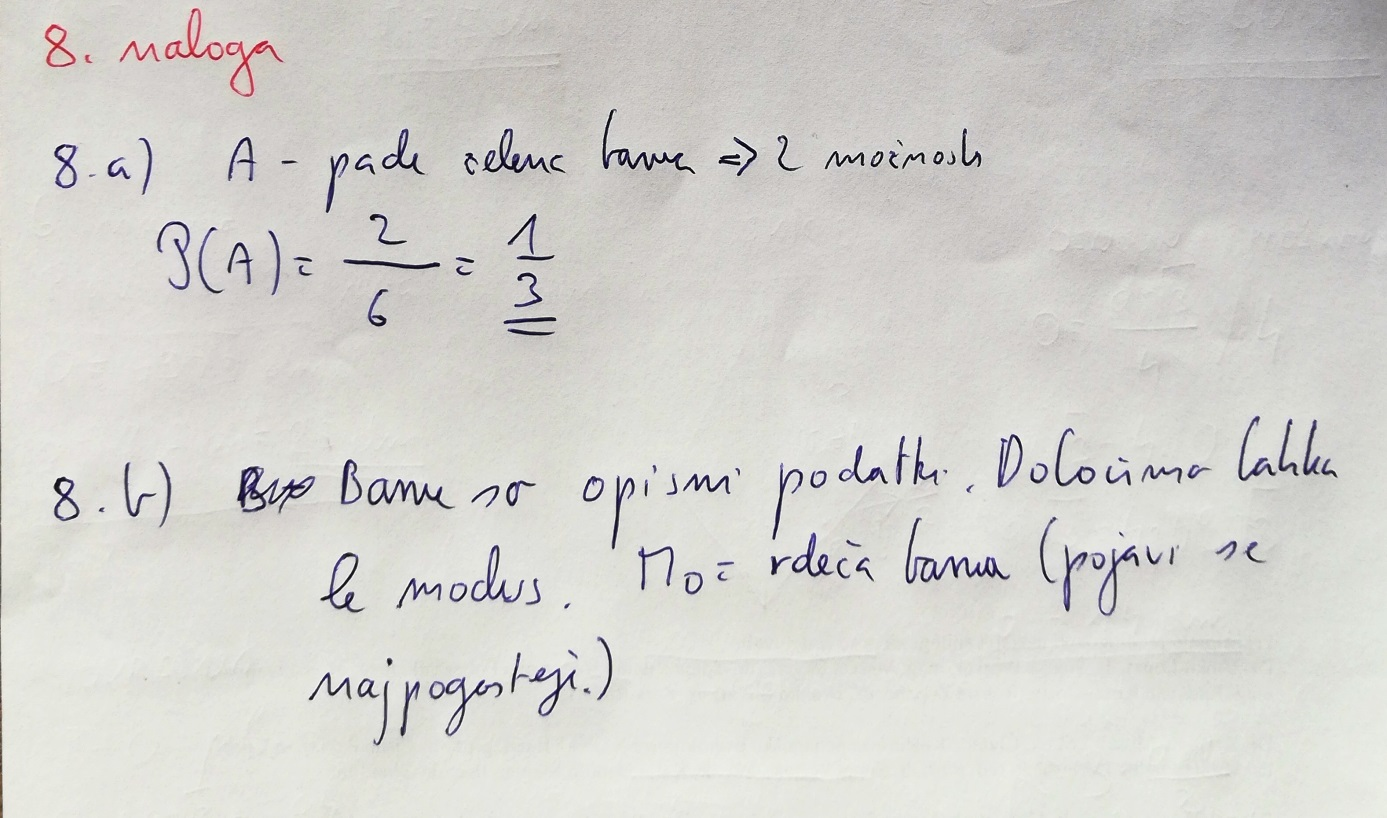 8. naloga
8.a) A - pade zelena barva => 2 možnosti
P(A) = 2/6 = 1/3
8.b) Barve so opisni podatki. Določimo lahko
le modus. Mo = rdeča barva (pojavi se
najpogosteje.)